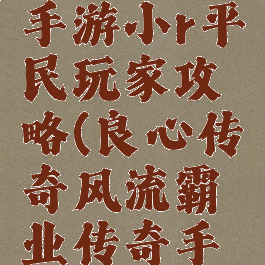 手游小r平
民玩家攻
略(良心传
奇风流霸
业传奇手